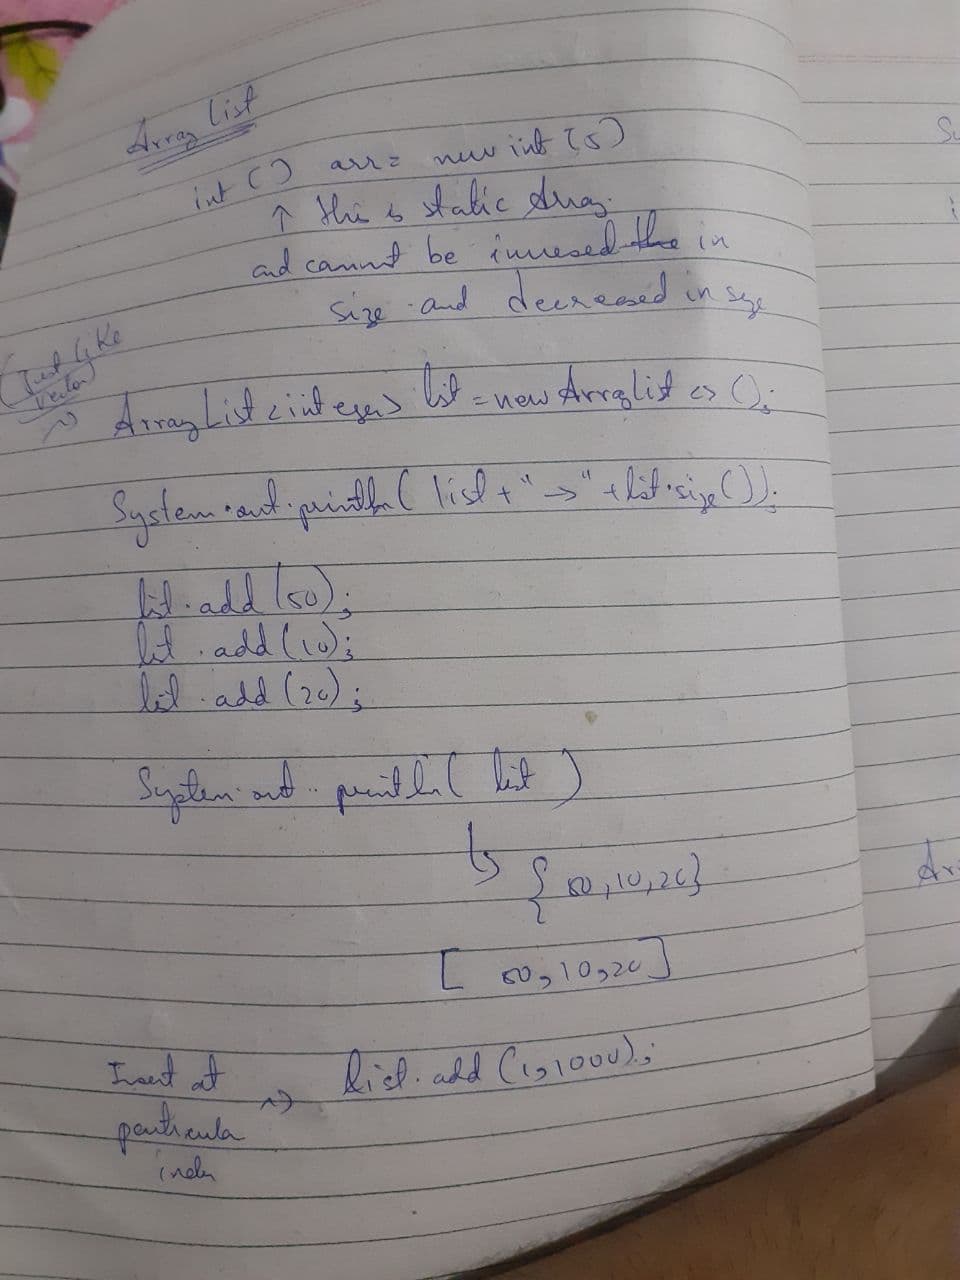 Array List
int () arr = new int (5)
↑ this is static Array.
and cannot be incresed the in
size and decreased in size
(Just like
vector)
→ Array List <integer> list = new Arraylist <> ();
System.out.println( list + "->" + list.size());
list.add (50);
list.add (10);
list.add (20);
System.out.println( list )
↳ { 50, 10, 20}
[ 50, 10, 20 ]
Insert at → list.add (1, 1000);
particula
index
Ar